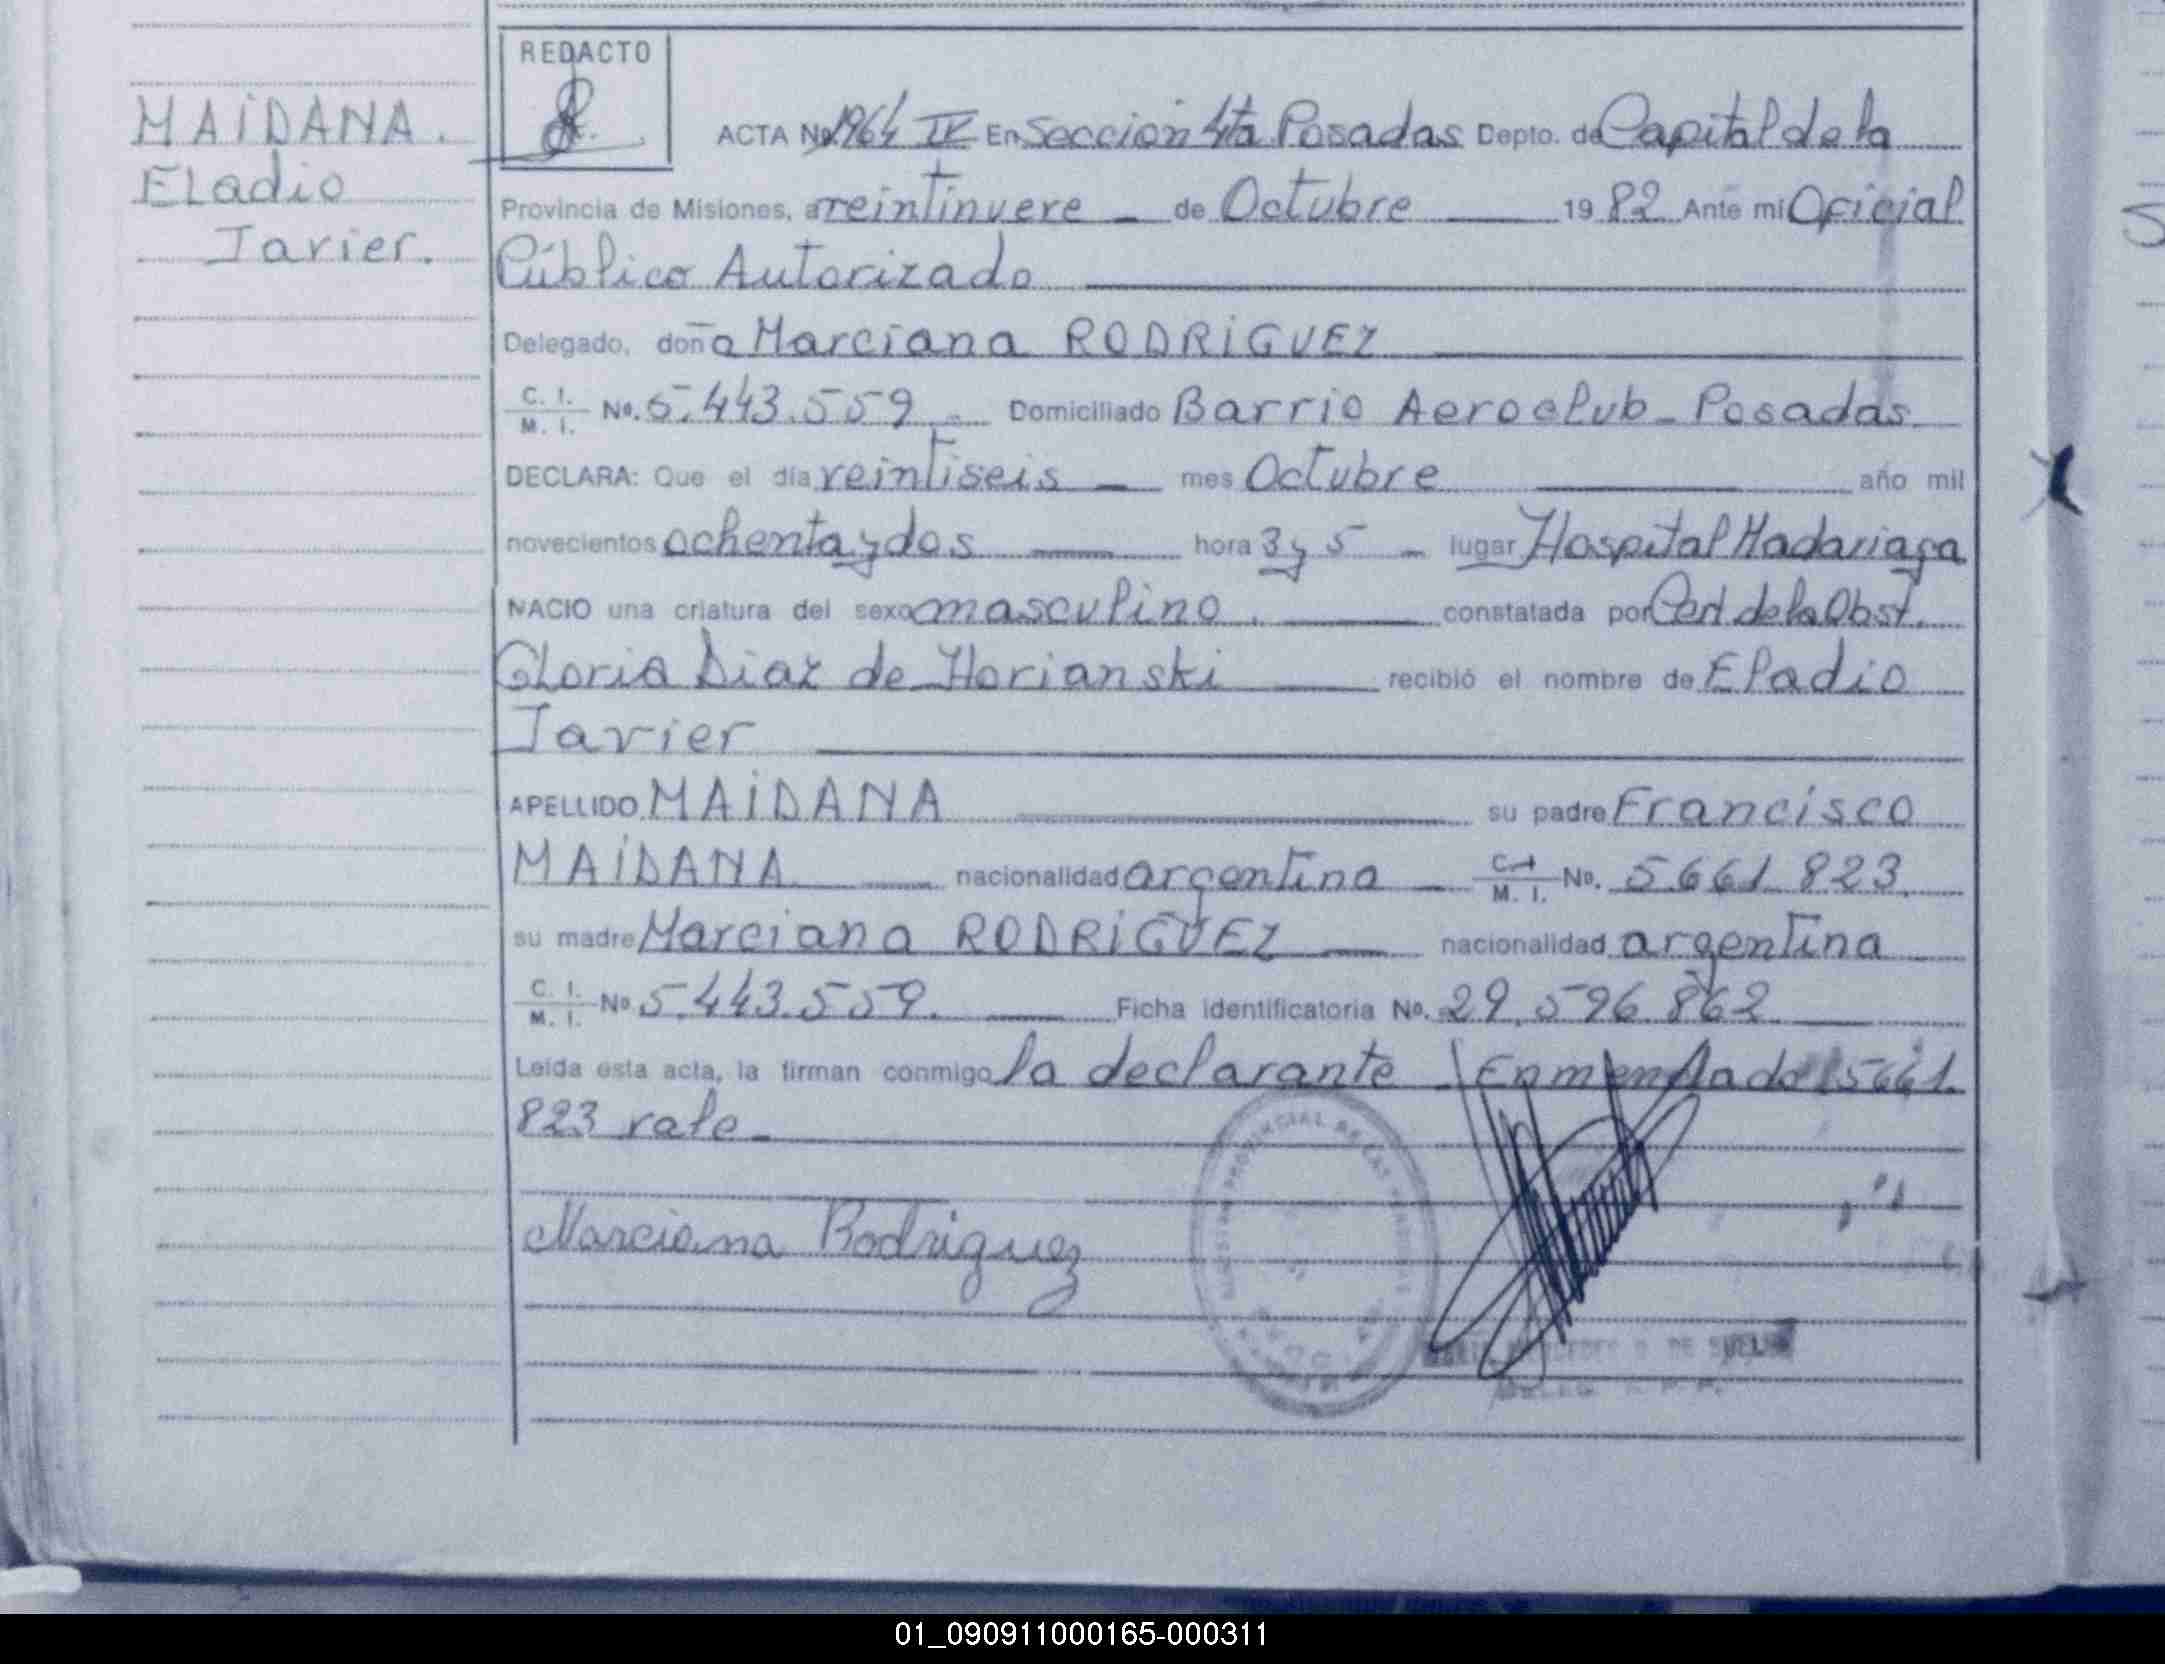 REDACTO
MAIDANA.
ELadio
Javier.
ACTA No. 1964 IV En Seccion 4ta Posadas Depto. de Capital de la
Provincia de Misiones, a veintinueve - de Octubre 19 82 Ante mi Oficial
Público Autorizado
Delegado, doña Marciana RODRIGUEZ
C. I. M. I. No. 5.443.559. Domiciliado Barrio Aeroclub - Posadas
DECLARA: Que el día veintiseis - mes Octubre año mil
novecientos ochenta y dos hora 3 y 5 - lugar Hospital Madariaga
NACIO una criatura del sexo masculino. constatada por Cert. de la Obst.
Gloria Diaz de Horianski recibió el nombre de Eladio
Javier
APELLIDO MAIDANA su padre Francisco
MAIDANA nacionalidad argentina C. I. M. I. No. 5661 823.
su madre Marciana RODRIGUEZ nacionalidad argentina
C. I. M. I. No. 5.443.559. Ficha identificatoria No. 29.596.862
Leída esta acta, la firman conmigo la declarante - Enmendado 5661.
823 vale -
Marciana Rodriguez
PROVINCIAL DE LAS
DE
01_090911000165-000311